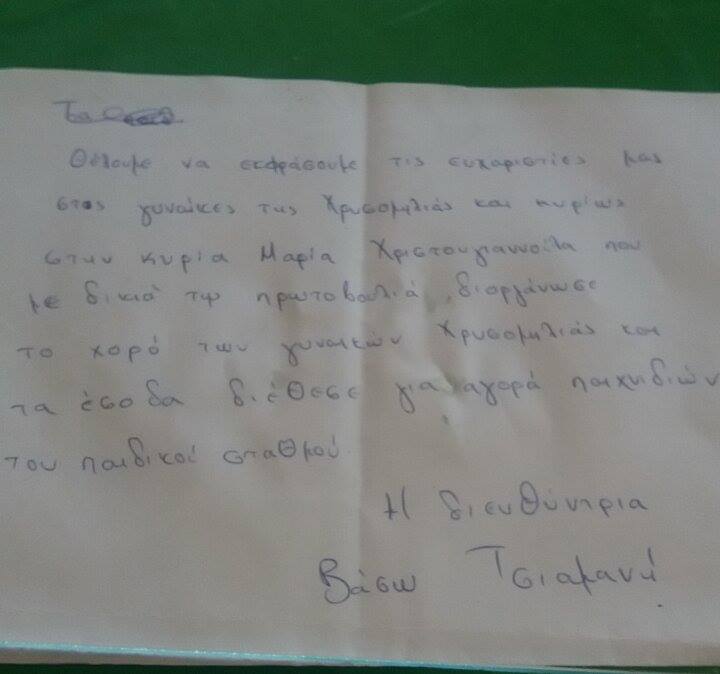 Θέλουμε να εκφράσουμε τις ευχαριστίες μας
στις γυναίκες της Χρυσομηλιάς και κυρίως
στην κυρία Μαρία Χριστουγιαννούλα που
με δικιά της πρωτοβουλιά, διοργάνωσε
το χορό των γυναικών Χρυσομηλιάς και
τα έσοδα διέθεσε για αγορά παιχνιδιών
του παιδικού σταθμού.
Η διευθύντρια
Βάσω Τσιαμανή